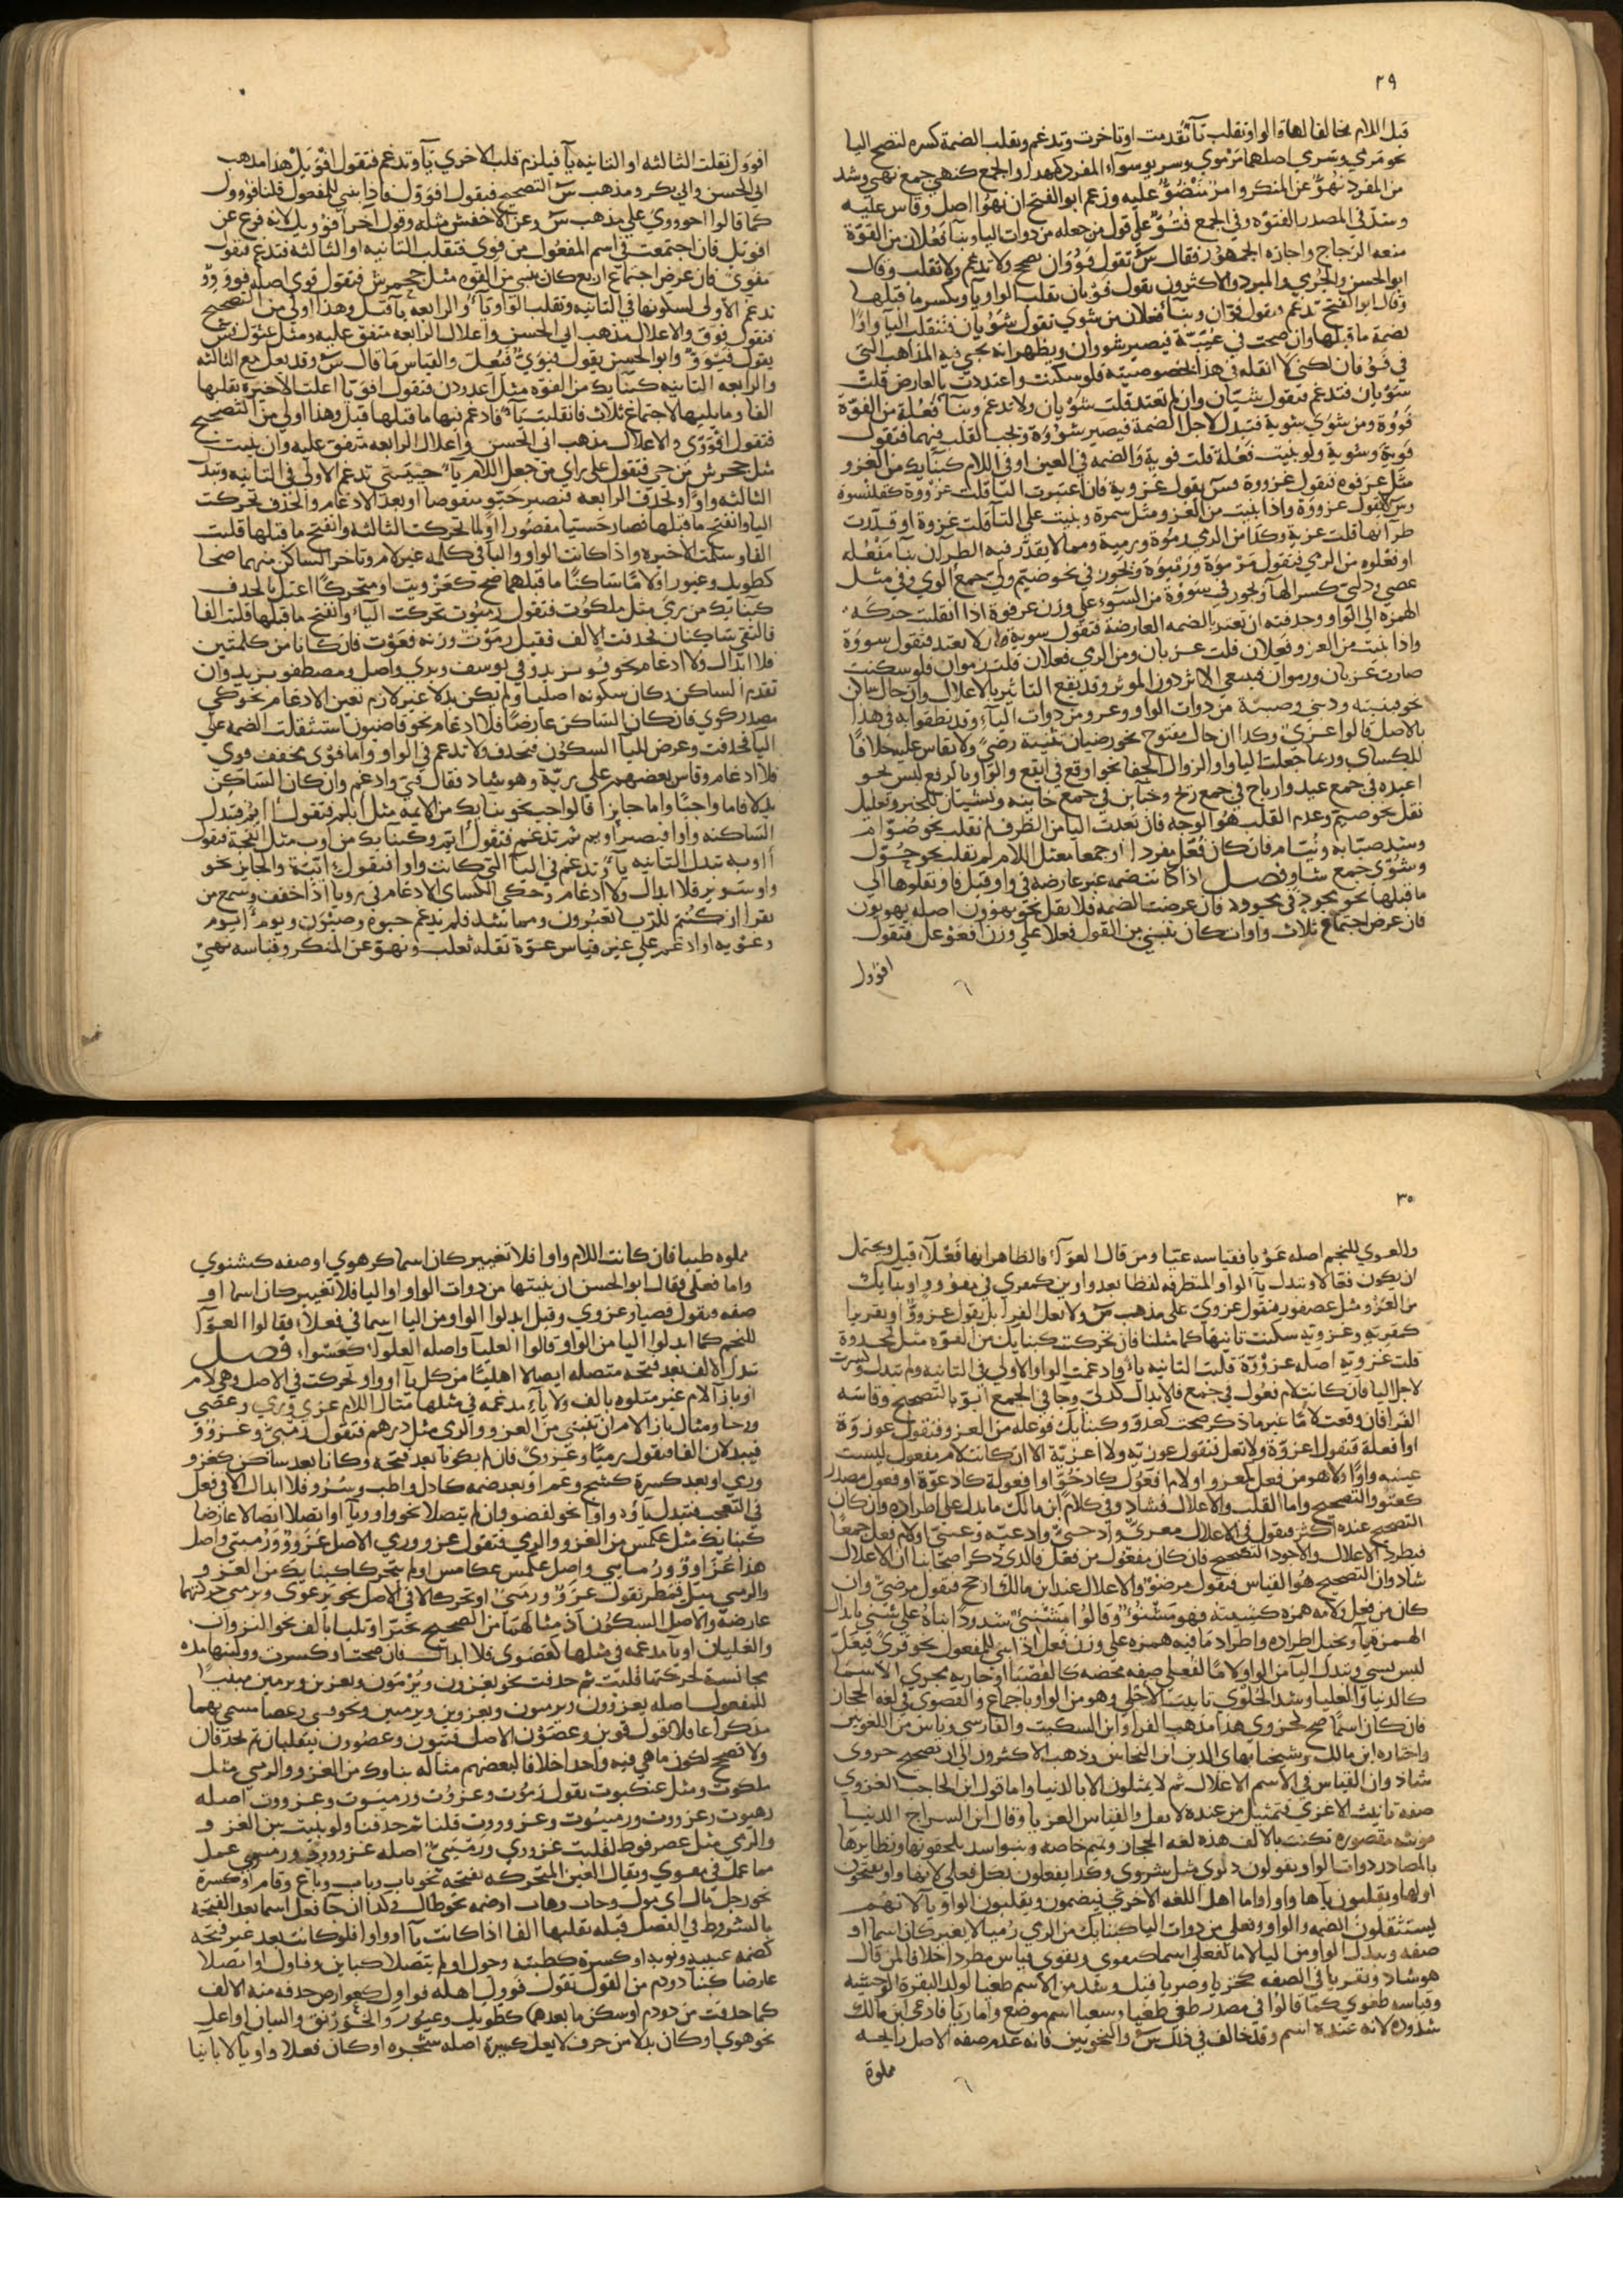 ٢٩
قبل اللام مخالفا لها والواو تقلب يآ تقدمت او تاخرت وتدغم وتقلب الضمة كسره لتصح اليا
نحو مرمي وسري اصلهما مرموي وسريو سوآء المفرد والجمع كنهي جمع نهي وشذ
من المفرد نهو عن المنكر وامر منضو عليه وزعم ابو الفتح ان نهوا اصل وقاس عليه
وشذ في المصدر الفتوه وفي الجمع فتو علي قول من جعله من ذوات اليا وبنآ فعلان من القوة
منعه الزجاج واجازه الجمهور فقال س تقول قووان تصح ولا تدغم ولا تقلب وقال
ابو الحسن والجرمي والمبرد والاكثرون يقول قويان تقلب الواو يا ويكسر ما قبلها
وقال ابو الفتح تدغم وتقول قوان وبنآ فعلان من شوي تقول شويان فتنقلب اليا واوا
لضمة ما قبلها وان صحت في عيبة فيصير شووان ويظهر انه يجي فيه المذاهب التي
في قوو فان لكني لا انقله في هذا لخصوصيته فلو سكنت واعتددت بالعارض قلت
شويان فتدغم فتقول شيان وان لم تعتد قلت شويان ولا تدغم وبنآ فعلة من القوة
قووة ومن شوي شوية فتبدل لاجل الضمة فيصير شووة وتجب القلب فيهما فتقول
قوية وشوية ولو بنيت فعلة قلت قوية والضمه في العين او في اللام كبنايك من الغزو
مثل عرقوه فتقول غزووة وس يقول غزوية فان اعتبرت التا قلت غزووة كقلنسوة
وس لا يقول غزووة واذا بنيت من الغزو مثل سمرة وبنيت علي التا قلت غزوة او قدرت
طرآنها قلت غزية وكذا من الرمي رموة ورمية ومما لا يقدر فيه الطرآن بنآ مفعله
او فعلوه من الرمي فتقول مرموة ورميوة وتجوز في نحو صيم ولي جمع الوي وفي مثل
عصي ودلي كسر الفآ وتجوز في سووة من السوء علي وزن عرقوة اذا انقلت حركة
الهمزه الي الواو وحذفته ان تعتد بالضمه العارضة فتقول سوية وان لا تعتد فتقول سووة
واذا بنيت من الغزو فعلان قلت غزيان ومن الرمي فعلان قلت رموان فلو سكنت
صارت غزيان ورموان فيبقي الاثر دون الموثر وقد يقع التاثير بالاعلال وان حال ساكن
نحو قنيه ودنيي وصبية من ذوات الواو وعرو من ذوات اليآء وقد نطقوا به في هذا
بالاصل قالوا غزي وكذا ان حال مفتوح نحو رضيان تثنية رضي ولا يقاس عليه خلافا
للكساي وربما جعلت اليا واوا لزوال الخفا نحو اوقع في ايقع والواو يا لرفع لبس نحو
اعيده في جمع عيد وارياح في جمع ريح وخباين في جمع خابيه ونشيان للخبر وتعليل
نقل نحو صيم وعدم القلب هو الوجه فان بعدت اليا من الطرف لم تقلب نحو صوام
وشذ صيابه ونيام فان كان فعل مفردا او جمعا معتل اللام لم تقلب نحو حول
وشوي جمع شاو فصل اذا كانت ضمه غير عارضه في واو قبل واو نقلوها الي
ما قبلها نحو يجود في يجوود فان عرضت الضمه فلا نقل نحو يهوون اصله يهويون
فان عرض اجتماع ثلاث واوات كان تبني من القول فعلا علي وزن افعوعل فتقول
افوول
افوول نقلت الثالثه او الثانيه يآ فيلزم قلب الاخري يآ وتدغم فتقول اقويل هذا مذهب
ابي الحسن وابي بكر ومذهب س التصحيح فيقول اقوول فاذا بني للمفعول قلنا اقووول
كما قالوا احووي علي مذهب س وعن الاخفش مثله وقول آخر اقوويل لانه فرع عن
اقويل فان اجتمعت في اسم المفعول من قوي فتقلب الثانيه او الثالثه فتدغم فتقول
مقوي فان عرض اجتماع اربع كان تبني من القوه مثل جحمرش فتقول قوي اصله قوووو
تدغم الاولي لسكونها في الثانيه وتقلب الواو يآ والرابعه يا قبل وهذا اولي من التصحيح
فتقول قوو والاعلال مذهب ابي الحسن واعلال الرابعه متفق عليه ومثل عثول س
يقول قيوو وابو الحسن يقول قيوي فيعل والقياس ما قال س وقد يعل مع الثالثه
والرابعه الثانيه كبنايك من القوه مثل اغدودن فتقول اقويا اعلت الاخيره بقلبها
الفا وما يليها لاجتماع ثلاث فانقلبت يآ فادغم فيها ما قبلها قبل وهذا اولي من التصحيح
فتقول اقووي والاعلال مذهب ابي الحسن واعلال الرابعه متفق عليه وان بنيت
مثل جحمرش من حي فتقول علي راي من جعل اللام يآ حييي تدغم الاولي في الثانيه وتبدل
الثالثه واوا وتحذف الرابعه فتصير حيو منقوصا او بعد الادغام والحذف تحركت
اليا وانفتح ما قبلها فصار حييا مقصورا او لما تحركت الثالثه وانفتح ما قبلها قلبت
الفا وسلمت الاخيره واذا كانت الواو واليا في كلمه غير لام وتاخر الساكن منهما صحا
كطويل وغيور او لاما ساكنا ما قبلهما صح كغزويت او متحركا اعتل بالحذف
كبنايك من رمي مثل ملكوت فتقول رميوت تحركت اليآ وانفتح ما قبلها قلبت الفا
فالتقي ساكنان فحذفت الالف فقيل رموت وزنه فعوت فان كانا من كلمتين
فلا ابدال ولا ادغام نحو قو يزيد وفي يوسف ويري واصل ومصطفو يزيد وان
تقدم الساكن وكان سكونه اصليا ولم يكن بدلا غير لازم تعين الادغام نحو كي
مصدر كوي فان كان الساكن عارضا فلا ادغام نحو قاضيون استثقلت الضمه علي
اليا فحذفت وعرض لليآ السكون فتحذف ولا تدغم في الواو واما قوي مخفف قوي
فلا ادغام وقاس بعضهم علي رية وهو شاذ فقال قي وادغم وان كان الساكن
بدلا فاما واجبا واما جايزا قالوا جب نحو بنايك من الايمه مثل ابلم فتقول اايم فتبدل
الساكنه واوا فيصير اويم ثم تدغم فتقول ايم وكبنايك من اوب مثل انفحة فتقول
ااوبه تبدل الثانيه يآ وتدغم في اليا التي كانت واوا فتقول ايبة والجايز نحو
واو سوير فلا ابدال ولا ادغام وحكي الكساي الادغام في رويا اذا خفف وسمع من
يقرا ان كنتم للريا تعبرون ومما شذ فلم يدغم حيوه وضيون ويوم ايوم
وعويه او ادغم علي غير قياس عوة نقله ثعلب ونهو عن المنكر وقياسه نهي
٣٠
والعوي للنجم اصله عويا فقياسه عيا ومن قال العوآ فالظاهر انها فعلآ قيل ويحتمل
ان يكون فعالا وتبدل يآ الواو المتطرفه لفظا بعد واوين كمقوي في مقووو او بنايك
من الغزو مثل عصفور فتقول غزوي علي مذهب س ولا يعل الفرا بل يقول غزوو او تقديرا
كمقويه وغزويه سكنت ثانيتها كما مثلنا فان تحركت كبنايك من القوه مثل قمحدوة
قلت غزويه اصله غزووة قلبت الثانيه يآ وادغمت الواو الاولي في الثانيه ولم تبدل وكسرت
لاجل اليا فان كانت لام فعول في جمع فالابدال كدلي وجا في الجمع ابو بالتصحيح وقاسه
الفرا فان وقعت لاما غير ما ذكر صحت كعدو وكبنايك فوعله من الغزو فتقول غوزوة
او افعلة فتقول اغزوة ولا تعل فتقول غوزيه ولا اغزيه الا ان كانت لام مفعول ليست
عينه واوا ولا هو من فعل كمغزو او لام افعول كادحو او افعولة كادعوة او فعول مصدر
كعتو والتصحيح واما القلب والاعلال فشاذ وفي كلام ابن مالك ما يدل علي اطراده وان كان
التصحيح عنده اكثر فيقول في الاعلال معزي وادحي وادعيه وعتي او لام فعل جمعا
فيطرد الاعلال والاجود التصحيح فان كان مفعول من فعل فالذي ذكر اصحابنا ان الاعلال
شاذ وان التصحيح هو القياس فيقول مرضو والاعلال عند ابن مالك ارجح فيقول مرضي وان
كان من فعل ولامه همزه كشنيته فهو مشنوء وقالوا مشني شذوذا ابناه علي شني بابدال
الهمزه يآ وتخيل اطراده واطراد ما فيه همزه علي وزن فعل اذا بني للمفعول نحو قري فيعل
ليس بشي وتبدل اليا من الواو لاما لفعلي صفه محضه كالقصيا او جاريه مجري الاسما
كالدنيا والعليا وشذ الحلوي تانيث الاحلي وهو من الواو باجماع والقصوي في لغه الحجاز
فان كان اسما صح كحزوي هذا مذهب الفرا وابن السكيت والفارسي وناس من اللغويين
واختاره ابن مالك وشيخنا بهاى الدين ابن النحاس وذهب الاكثرون الي ان تصحيح حزوي
شاذ وان القياس في الاسم الاعلال ثم لا يمثلون الا بالدنيا واما قول ابن الحاجب الغزوي
صفه تانيث الاغزي فتمثيل من عنده لا نقل والقياس الغزيا وقال ابن السراج الدنيا
مونثه مقصوره تكتب بالالف هذه لغه الحجاز وتميم خاصه وبنو اسد يلحقونها ونظايرها
بالمصادر ذوات الواو ويقولون دنوي مثل شروي وكذا يفعلون بكل فعلي لامها واو يفتحون
اولها ويقلبون ياها واوا واما اهل اللغه الاخري فيضمون ويقلبون الواو يآ لانهم
يستثقلون الضمه والواو وفعلي من ذوات اليا كبنايك من الرمي رميا لا يغير كان اسما او
صفه وتبدل الواو من اليا لاما لفعلي اسما كبقوي وتقوي قياس مطرد اخلافا لمن قال
هو شاذ وتقر يا في الصفه كخزيا وصديا قيل وشذ من الاسم طغيا لولد البقرة الوحشيه
وقياسه طغوي كما قالوا في مصدر طغي طغيا وسعيا اسم موضع واما ريا فادعي ابن مالك
شذوذه لانه عنده اسم وقد خالف في ذلك س والنحويين فانه عندهم صفه الاصل رايحه
مملوة
مملوه طيبا فان كانت اللام واوا فلا تغيير كان اسما كرهوي او صفه كشنوي
واما فعلي فقال ابو الحسن ان بنيتها من ذوات الواو او اليا فلا تغيير كان اسما او
صفه فتقول قصيا وغزوي وقيل ابدلوا الواو من اليا اسما في فعلآ فقالوا العوآ
للنجم كما ابدلوا اليا من الواو قالوا العليآ واصله العلوآ كعشوآ فصل
تبدل الالف بعد فتحه متصله اتصالا اصليا من كل يآ او واو تحركت في الاصل وهي لام
او بازآ لام غير متلوه بالف ولا يآ مدغمه في مثلها مثال اللام غزي ورمي وعصي
ورحا ومثال بازا لام ان تبني من الغزو والرمي مثل درهم فتقول رميي وغزوو
فيبدلان الفا فيقول رميا وغزوي فان لم يكونا بعد فتحه وكانا بعد ساكن كغزو
ورمي او بعد كسرة كشج وعم او بعد ضمه كادل واظب وسرو فلا ابدال الا في فعل
في التعجب فتبدل يآوه واوا نحو لقضو وان لم يتصلا نحو واو ويآ او اتصلا اتصالا عارضا
كبنايك مثل عكمس من الغزو والرمي فتقول غزوو ورمي الاصل غزووو ورميي واصل
هذا غزاوو ورمايي واصل عكمس عكامس او لم يتحركا كبنايك من الغزو
والرمي مثل قمطر تقول غزوو ورمي او تحركا لا في الاصل نحو يرعوي ويرمي حركتهما
عارضه والاصل السكون اذ مثالهما من الصحيح يحمر او تليا بالف نحو النزوان
والغليان او يآ مدغمه في مثلها كعصوي فلا ابدال فان صحت او كسرت ووليتها مده
مجانسة لحركتها قلبت ثم حذفت نحو يغزون ويرمون ويغزين ويرمين مبنيا
للمفعول اصله يغزوون ويرميون ويغزوين ويرميين ونحو في رعصا مسمي بهما
مذكرا عاقلا تقول فتون وعصون الاصل فتيون وعصوون تنقلبان ثم تحذفان
ولا تصح لكون ما هي فيه واحدا خلافا لبعضهم مثاله بناوك من الغزو والرمي مثل
ملكوت ومثل عنكبوت تقول رموت وغزوت ورميوت وغزووت اصله
رميوت وغزووت ورمييوت وغزوووت قلبنا ثم حذفنا ولو بنيت من الغزو
والرمي مثل عصرفوط لقلت غزووي ورميي اصله غزوووو ورمييوي عمل
مما عمل في مقوي ويقال العين المتحركه بفتحه نحو باب وناب وباع وقام او كسرة
نحو رجل مال اي مول وخاف وهاب او ضمه نحو طال وكذا ان جا فعل اسما بعد الفتحة
بالشروط في الفصل قبله تقلبها الفا اذا كانت يآ او واوا فلو كانت بعد غير فتحه
كضمه عيبه ونوبه او كسرة كطيبه وحول او لم يتصلا كباين وقاول او اتصلا
عارضا كبنآ دودم من القول تقول قوول اهله قواول كعوارض حذفه منه الالف
كما حذفت من دودم او سكن ما بعدهما كطويل وغيور والخورنق والبيان او اعل
نحو هوي او كان بدلا من حرف لا يعل كشيرة اصله شجره او كان فعلا واويآ لا يايا